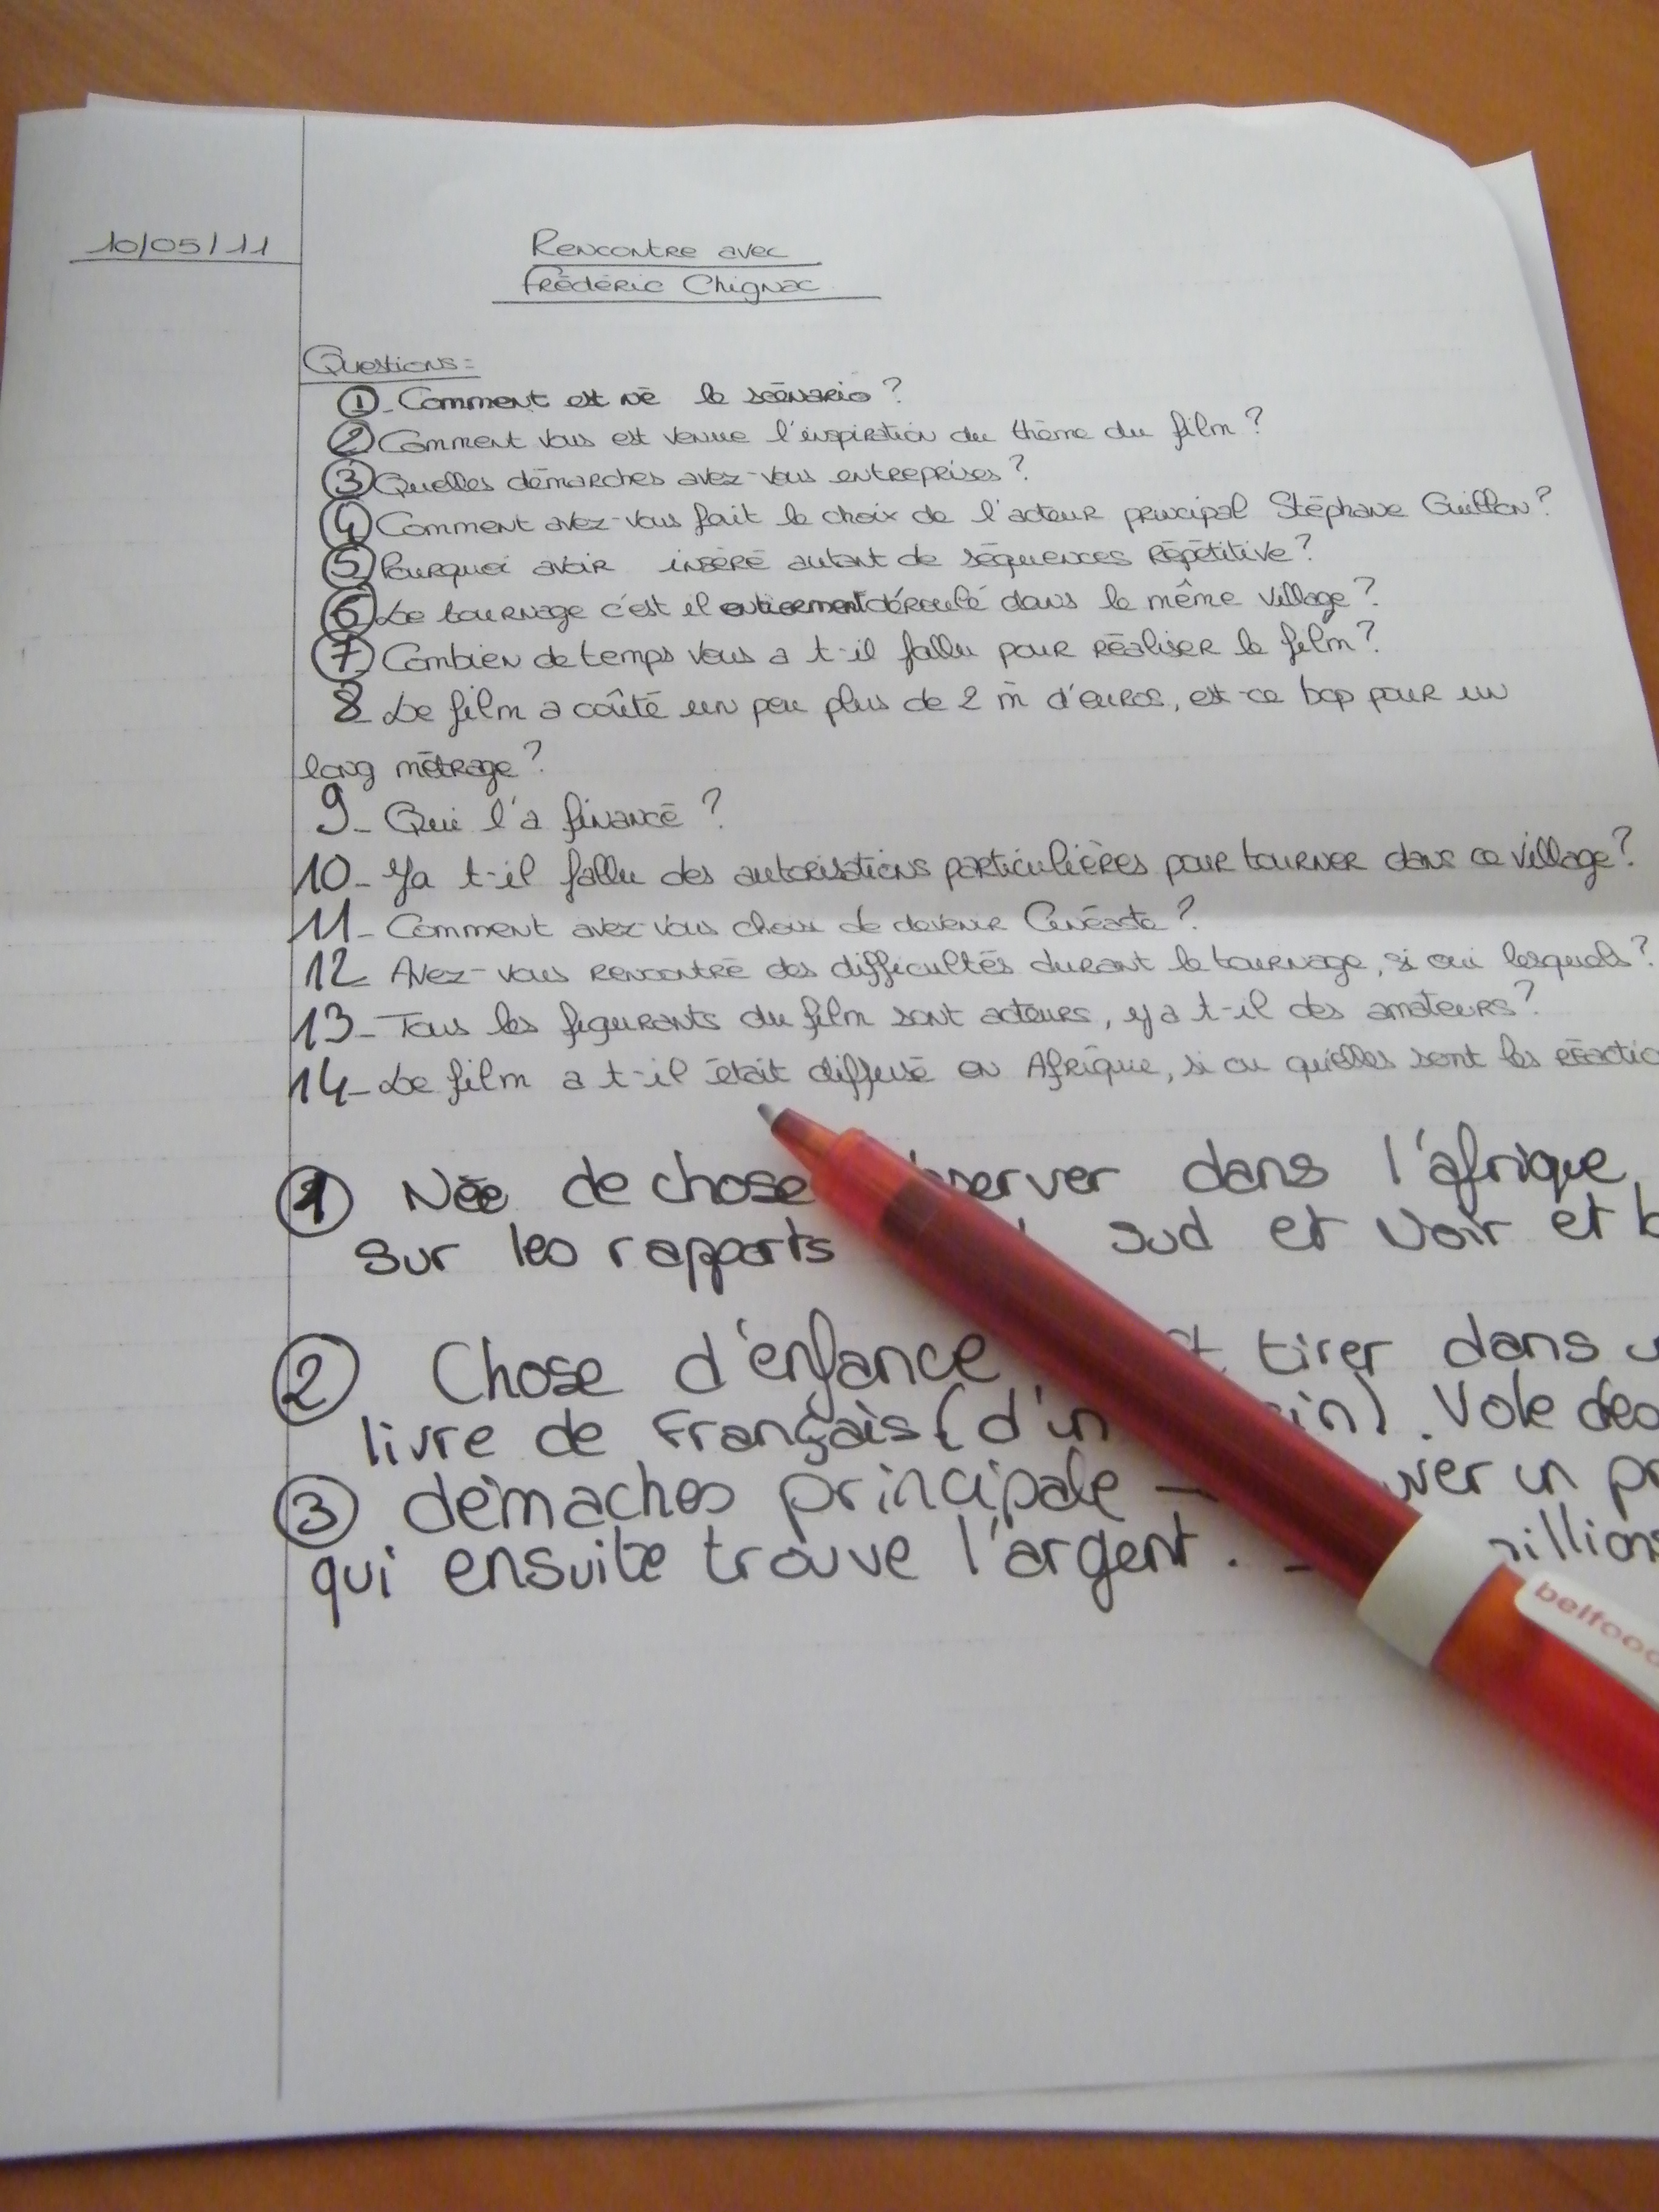 10/05/11
Rencontre avec
Frédéric Chignac
Questions:
1. Comment est né le scénario ?
2 Comment vous est venue l'inspiration du thème du film ?
3 Quelles démarches avez-vous entreprises ?
4 Comment avez-vous fait le choix de l'acteur principal Stéphane Guillon ?
5 Pourquoi avoir inséré autant de séquences répétitive ?
6 Le tournage c'est il entierement déroulé dans le même village ?
7 Combien de temps vous a t-il fallu pour réaliser le film ?
8 Le film a coûté un peu plus de 2 m d'euros, est-ce bcp pour un
long métrage ?
9- Qui l'a financé ?
10- Ya t-il fallu des autorisations particulières pour tourner dans ce village ?
11- Comment avez-vous choisi de devenir Cinéaste ?
12 Avez-vous rencontré des difficultés durant le tournage, si oui lesquels ?
13- Tous les figurants du film sont acteurs, y a t-il des amateurs ?
14- Le film a t-il était diffusé en Afrique, si ou quelles sont les
1 Née de chose dans l'afrique
sur les rapports sud et voir et
2 Chose d'enfance tirer dans
livre de Français (d'un . Vole des
3 démaches principale - un
qui ensuite trouve l'argent. -
belfood